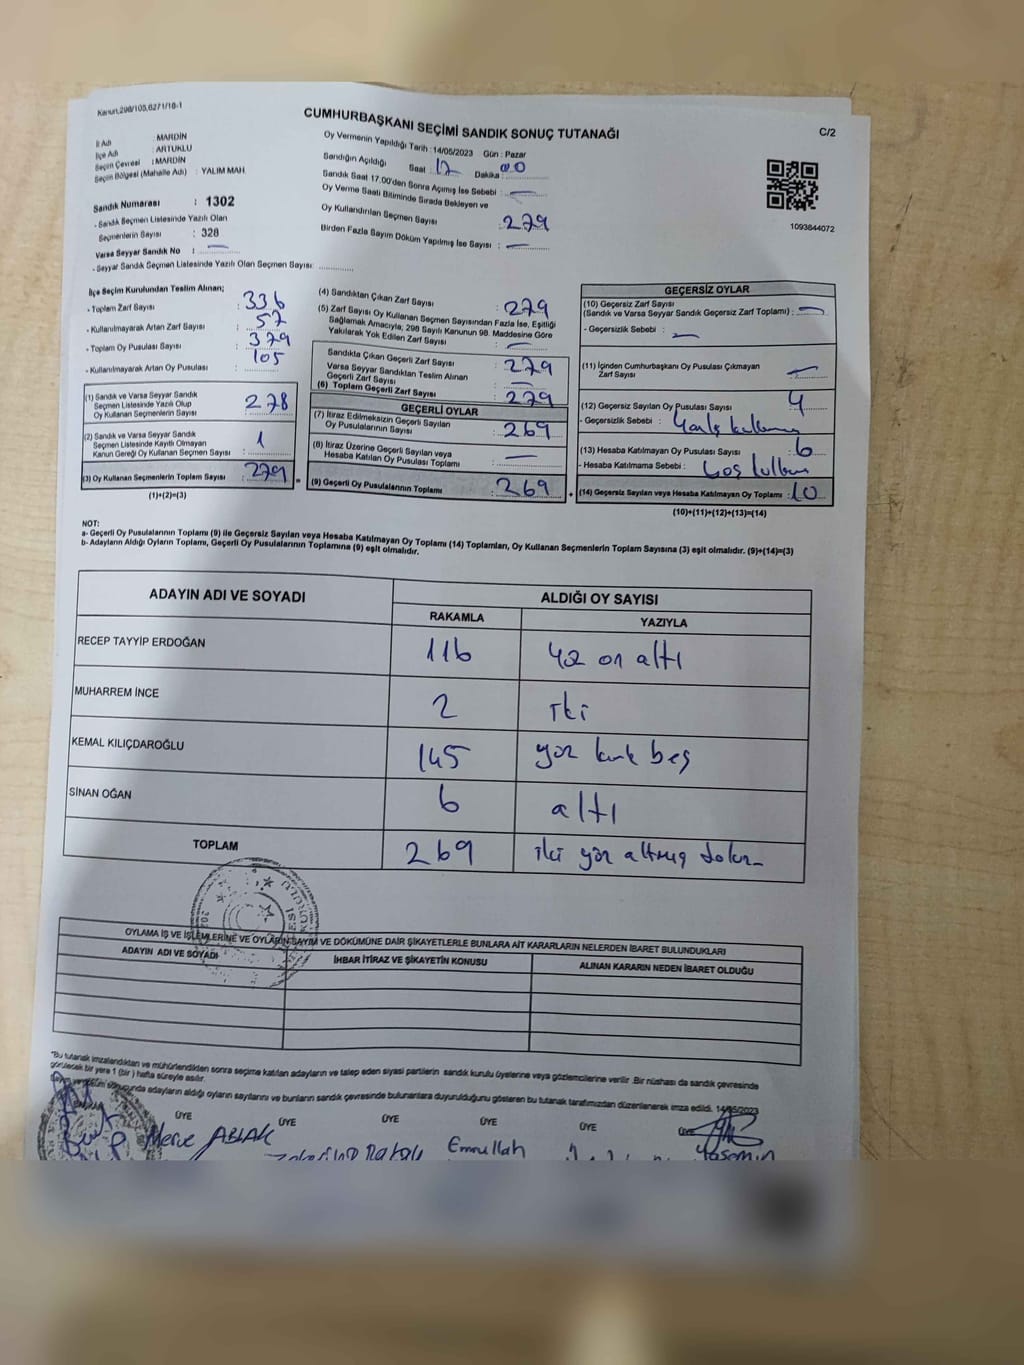 Kanun,298/105,6271/18-1
CUMHURBAŞKANI SEÇİMİ SANDIK SONUÇ TUTANAĞI
C/2
İl Adı : MARDİN
İlçe Adı : ARTUKLU
Seçim Çevresi : MARDİN
Seçim Bölgesi (Mahalle Adı) : YALIM MAH.
Sandık Numarası : 1302
- Sandık Seçmen Listesinde Yazılı Olan
Seçmenlerin Sayısı : 328
Varsa Seyyar Sandık No : —
- Seyyar Sandık Seçmen Listesinde Yazılı Olan Seçmen Sayısı:
Oy Vermenin Yapıldığı Tarih : 14/05/2023 Gün : Pazar
Sandığın Açıldığı Saat : 17 Dakika : 00
Sandık Saat 17.00'den Sonra Açımış İse Sebebi : —
Oy Verme Saati Bitiminde Sırada Bekleyen ve
Oy Kullandırılan Seçmen Sayısı : 279
Birden Fazla Sayım Döküm Yapılmış İse Sayısı : —
1093844072
İlçe Seçim Kurulundan Teslim Alınan;
- Toplam Zarf Sayısı : 336
- Kullanılmayarak Artan Zarf Sayısı : 57
- Toplam Oy Pusulası Sayısı : 379
- Kullanılmayarak Artan Oy Pusulası : 105
(1) Sandık ve Varsa Seyyar Sandık
Seçmen Listesinde Yazılı Olup
Oy Kullanan Seçmenlerin Sayısı : 278
(2) Sandık ve Varsa Seyyar Sandık
Seçmen Listesinde Kayıtlı Olmayan
Kanun Gereği Oy Kullanan Seçmen Sayısı : 1
(3) Oy Kullanan Seçmenlerin Toplam Sayısı : 279
(1)+(2)=(3)
(4) Sandıktan Çıkan Zarf Sayısı : 279
(5) Zarf Sayısı Oy Kullanan Seçmen Sayısından Fazla İse, Eşitliği
Sağlamak Amacıyla; 298 Sayılı Kanunun 98. Maddesine Göre
Yakılarak Yok Edilen Zarf Sayısı : —
Sandıkta Çıkan Geçerli Zarf Sayısı : 279
Varsa Seyyar Sandıktan Teslim Alınan
Geçerli Zarf Sayısı : —
(6) Toplam Geçerli Zarf Sayısı : 279
GEÇERLİ OYLAR
(7) İtiraz Edilmeksizin Geçerli Sayılan
Oy Pusulalarının Sayısı : 269
(8) İtiraz Üzerine Geçerli Sayılan veya
Hesaba Katılan Oy Pusulası Toplamı : —
= (9) Geçerli Oy Pusulalarının Toplamı : 269
GEÇERSİZ OYLAR
(10) Geçersiz Zarf Sayısı
(Sandık ve Varsa Seyyar Sandık Geçersiz Zarf Toplamı) : —
- Geçersizlik Sebebi : —
(11) İçinden Cumhurbaşkanı Oy Pusulası Çıkmayan
Zarf Sayısı : —
(12) Geçersiz Sayılan Oy Pusulası Sayısı : 4
- Geçersizlik Sebebi :
(13) Hesaba Katılmayan Oy Pusulası Sayısı : 6
- Hesaba Katılmama Sebebi :
+ (14) Geçersiz Sayılan veya Hesaba Katılmayan Oy Toplamı : 10
(10)+(11)+(12)+(13)=(14)
NOT:
a- Geçerli Oy Pusulalarının Toplamı (9) ile Geçersiz Sayılan veya Hesaba Katılmayan Oy Toplamı (14) Toplamları, Oy Kullanan Seçmenlerin Toplam Sayısına (3) eşit olmalıdır. (9)+(14)=(3)
b- Adayların Aldığı Oyların Toplamı, Geçerli Oy Pusulalarının Toplamına (9) eşit olmalıdır.
ADAYIN ADI VE SOYADI
ALDIĞI OY SAYISI
RAKAMLA YAZIYLA
RECEP TAYYİP ERDOĞAN 116 yüz on altı
MUHARREM İNCE 2 iki
KEMAL KILIÇDAROĞLU 145 yüz kırk beş
SİNAN OĞAN 6 altı
TOPLAM 269 iki yüz altmış dokuz
OYLAMA İŞ VE İŞLEMLERİNE VE OYLARIN SAYIM VE DÖKÜMÜNE DAİR ŞİKAYETLERLE BUNLARA AİT KARARLARIN NELERDEN İBARET BULUNDUKLARI
ADAYIN ADI VE SOYADI İHBAR İTİRAZ VE ŞİKAYETİN KONUSU ALINAN KARARIN NEDEN İBARET OLDUĞU
"Bu tutanak imzalandıktan ve mühürlendikten sonra seçime katılan adayların ve talep eden siyasi partilerin sandık kurulu üyelerine veya gözlemcilerine verilir .Bir nüshası da sandık çevresinde
görülecek bir yere 1 (bir ) hafta süreyle asılır.
sonucunda adayların aldığı oyların sayılarını ve bunların sandık çevresinde bulunanlara duyurulduğunu gösteren bu tutanak tarafımızdan düzenlenerek imza edildi. 14/05/2023
ÜYE ÜYE ÜYE ÜYE ÜYE ÜYE
Merve ABLAK Emrullah Yasemin